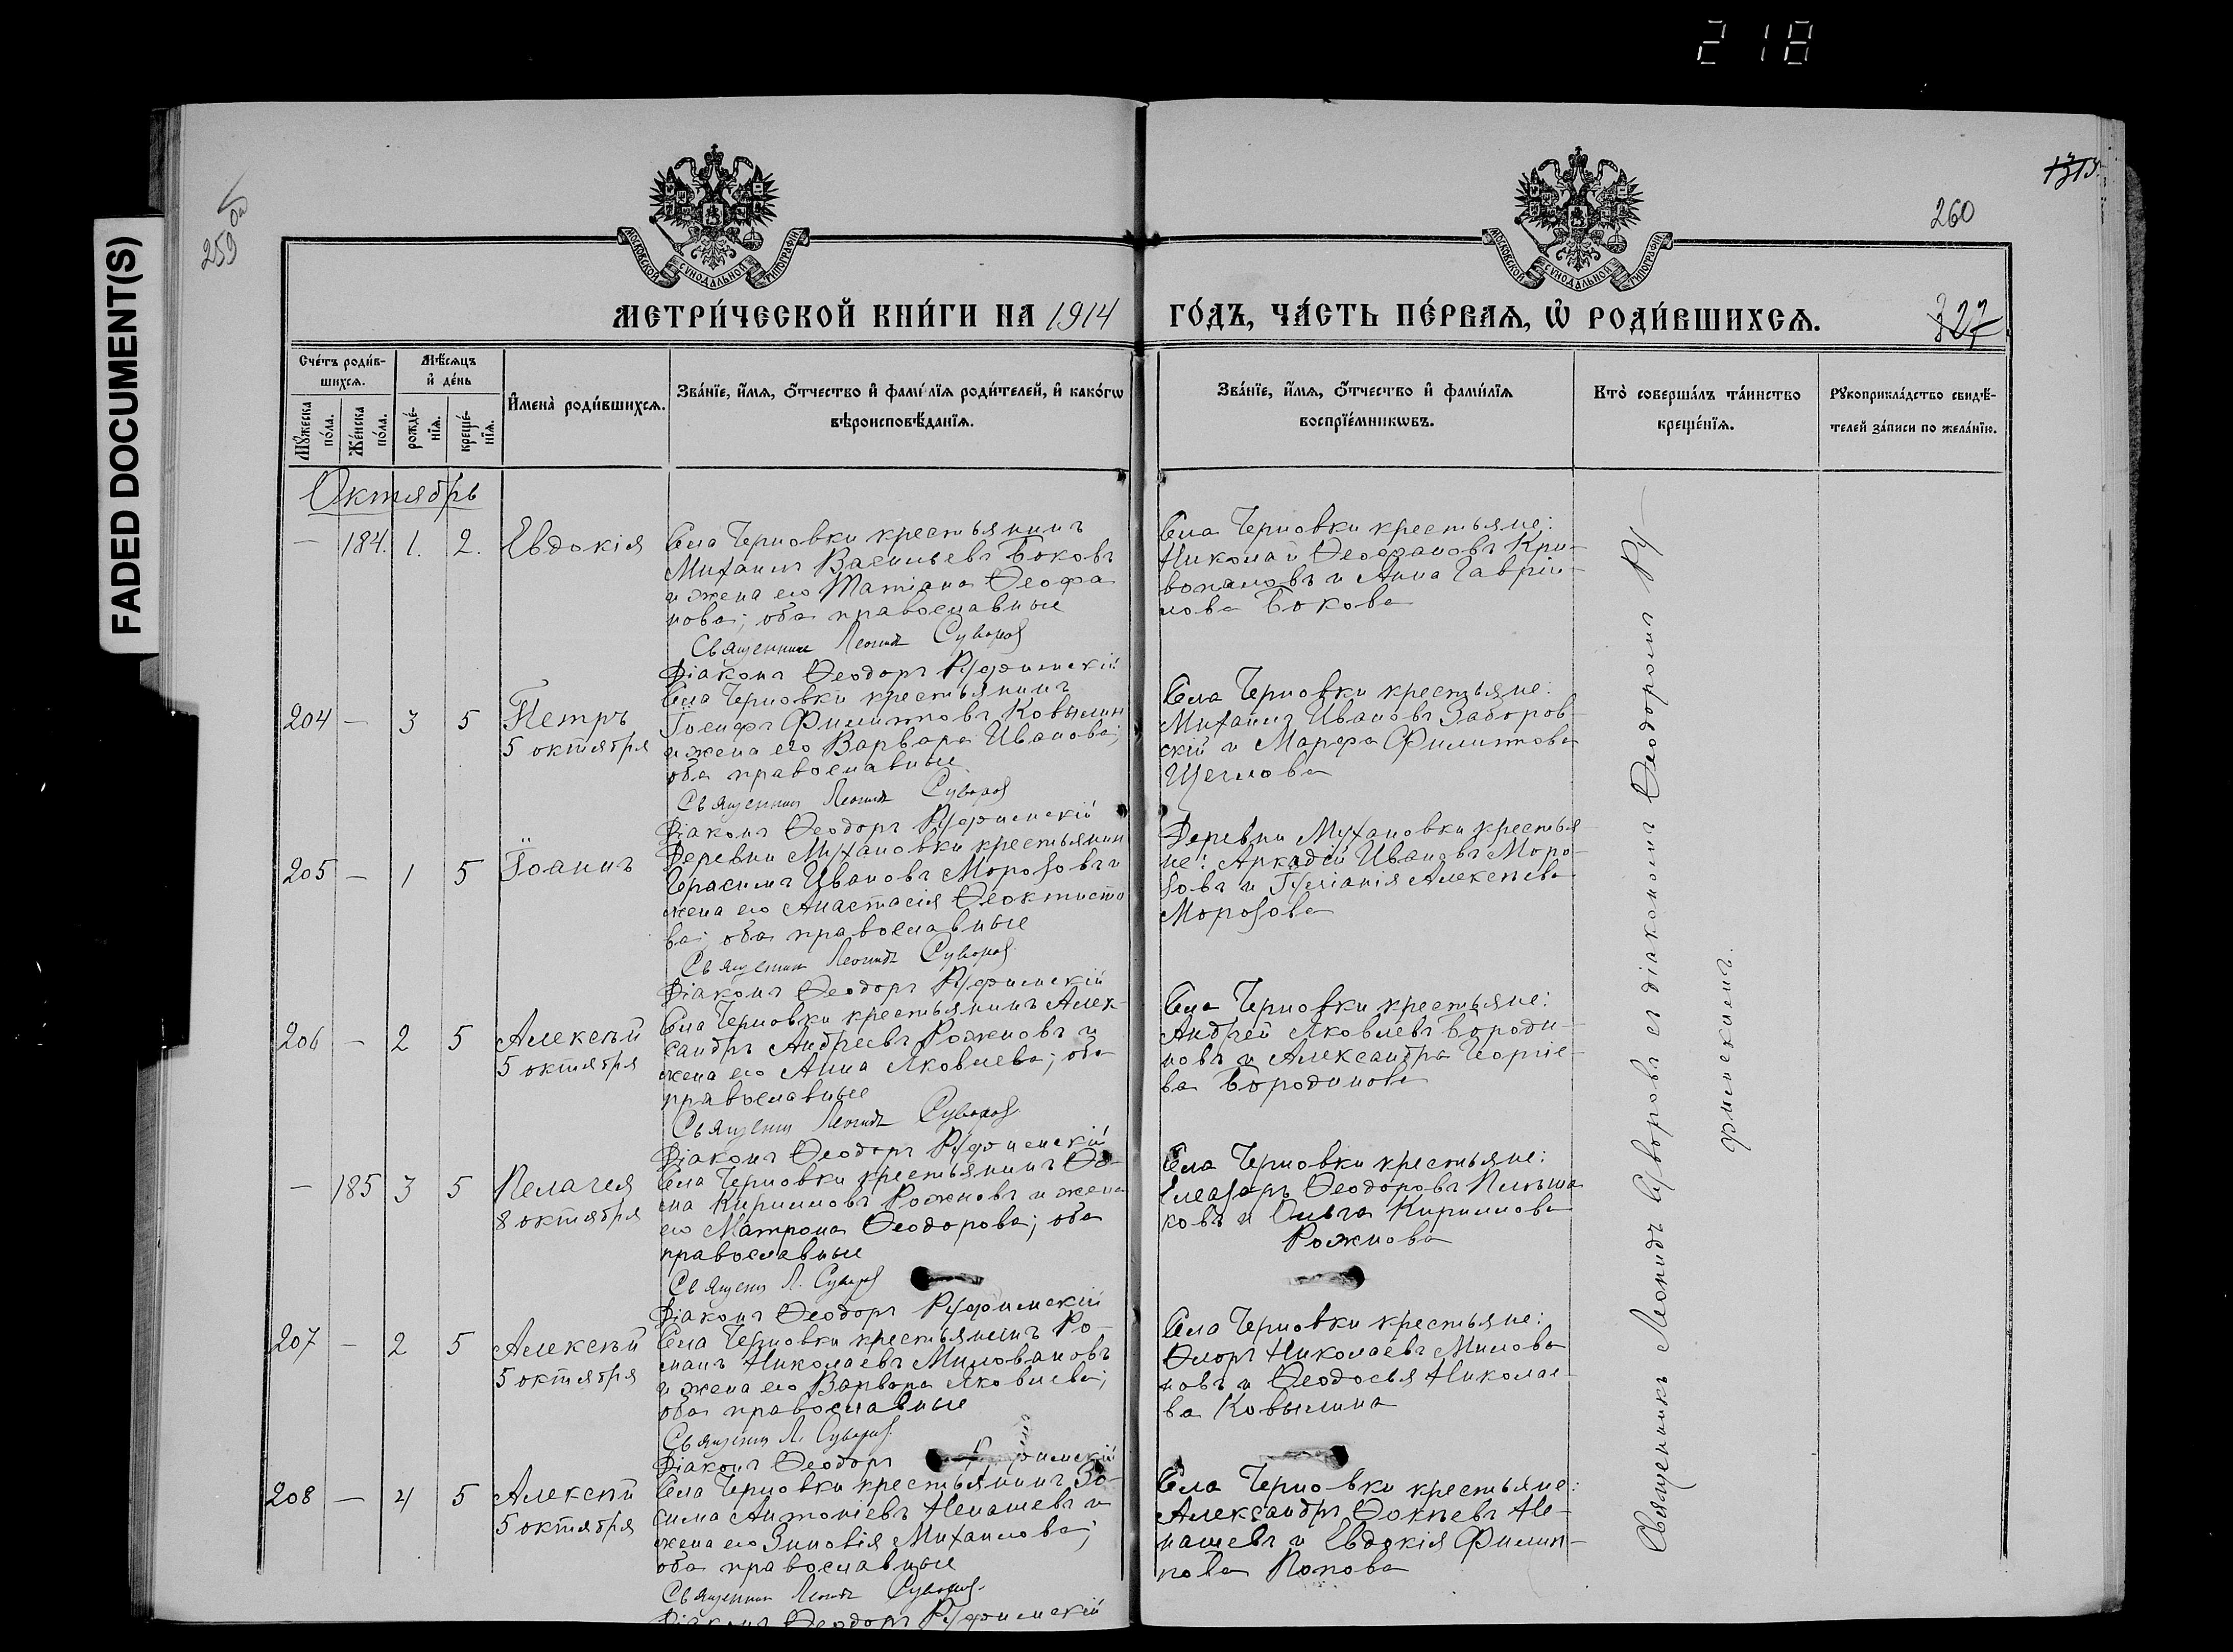 218
FADED DOCUMENT(S)
259 об
1313
260
МОСКОВСКОЙ СѴНОДАЛЬНОЙ ТИПОГРАФІИ
МОСКОВСКОЙ СѴНОДАЛЬНОЙ ТИПОГРАФІИ
МЕТРИ́ЧЕСКОЙ КНИ́ГИ НА 1914 ГО́ДЪ, ЧА́СТЬ ПЕ́РВАѦ, Ѡ РОДИ́ВШИХСѦ.
327
Сче́тъ роди́в-
шихсѧ.
Мѣ́сѧцъ
и де́нь
Мꙋ́жеска
по́ла.
Же́нска
по́ла.
рожде́-
нїѧ.
креще́-
нїѧ.
Имена̀ роди́вшихсѧ.
Зва́нїе, и́мѧ, ѻ́тчество и фами́лїѧ роди́телей, и како́гѡ
вѣроисповѣ́данїѧ.
Зва́нїе, и́мѧ, ѻ́тчество и фами́лїѧ
воспрїе́мникѡвъ.
Кто̀ соверша́лъ та́инство
креще́нїѧ.
Рꙋкоприкла́дство свидѣ́-
телей за́писи по жела́нїю.
Октябрь
— 184. 1. 2. Евдокія
Села Черновки крестьянинъ
Михаилъ Васильевъ Боковъ
и жена его Татіана Ѳеофа
нова; оба православные
Священникъ Леонидъ Суворовъ
Діаконъ Ѳеодоръ Руфимскій
Села Черновки крестьяне:
Николай Ѳеофановъ Кри-
вопаловъ и Анна Гавріи-
лова Бокова
204 — 3 5 Петръ
5 октября
Села Черновки крестьянинъ
Іосифъ Филипповъ Ковылин
и жена его Варвара Иванова;
оба православные
Священникъ Леонидъ Суворовъ
Діаконъ Ѳеодоръ Руфимскій
Села Черновки крестьяне:
Михаилъ Ивановъ Заборов-
скій и Марфа Филиппова
Щеглова
205 — 1 5 Іоаннъ
Деревни Мухановки крестьянин
Герасимъ Ивановъ Морозовъ и
жена его Анастасія Ѳеоктисто
ва; оба православные
Священник Леонидъ Суворовъ
Діаконъ Ѳеодоръ Руфимскій
Деревни Мухановки крестья-
не: Аркадій Ивановъ Моро-
зовъ и Іуліанія Алексѣева
Морозова
206 — 2 5 Алексѣй
5 октября
Села Черновки крестьянинъ Алек-
сандръ Андреевъ Рожновъ и
жена его Анна Яковлева; оба
православные
Священник Леонидъ Суворовъ
Діаконъ Ѳеодоръ Руфимскій
Села Черновки крестьяне:
Андрей Яковлевъ Бороди-
новъ и Александра Георгіе-
ва Бородинова
— 185 3 5 Пелагея
8 октября
Села Черновки крестьянинъ Ѳо-
ма Кирилловъ Рожновъ и жена
его Матрона Ѳеодорова; оба
православные
Священ Л. Суворовъ
Діаконъ Ѳеодоръ Руфимскій
Села Черновки крестьяне:
Елеазаръ Ѳеодоровъ
ковъ и Ольга Кириллова
Рожнова
207 — 2 5 Алексѣй
5 октября
Села Черновки крестьянинъ Ро-
манъ Николаевъ Миловановъ
и жена его Варвара Яковлева;
оба православные
Священ Л. Суворовъ
Діаконъ Ѳеодоръ Руфимскій
Села Черновки крестьяне:
Флоръ Николаевъ Милова
новъ и Ѳеодосья Николае-
ва Ковылина
208 — 4 5 Алексѣй
5 октября
Села Черновки крестьянинъ Зо-
сима Антоніевъ Ненашевъ и
жена его Зиновія Михаилова;
оба православные
Священник Леонидъ Суворовъ
Діаконъ Ѳеодоръ Руфимскій
Села Черновки крестьяне:
Александръ Ѳокѣевъ Не-
нашевъ и Евдокія Филип-
пова Попова
Священникъ Леонидъ Суворовъ съ діакономъ Ѳеодоромъ Ру-
фимскимъ.